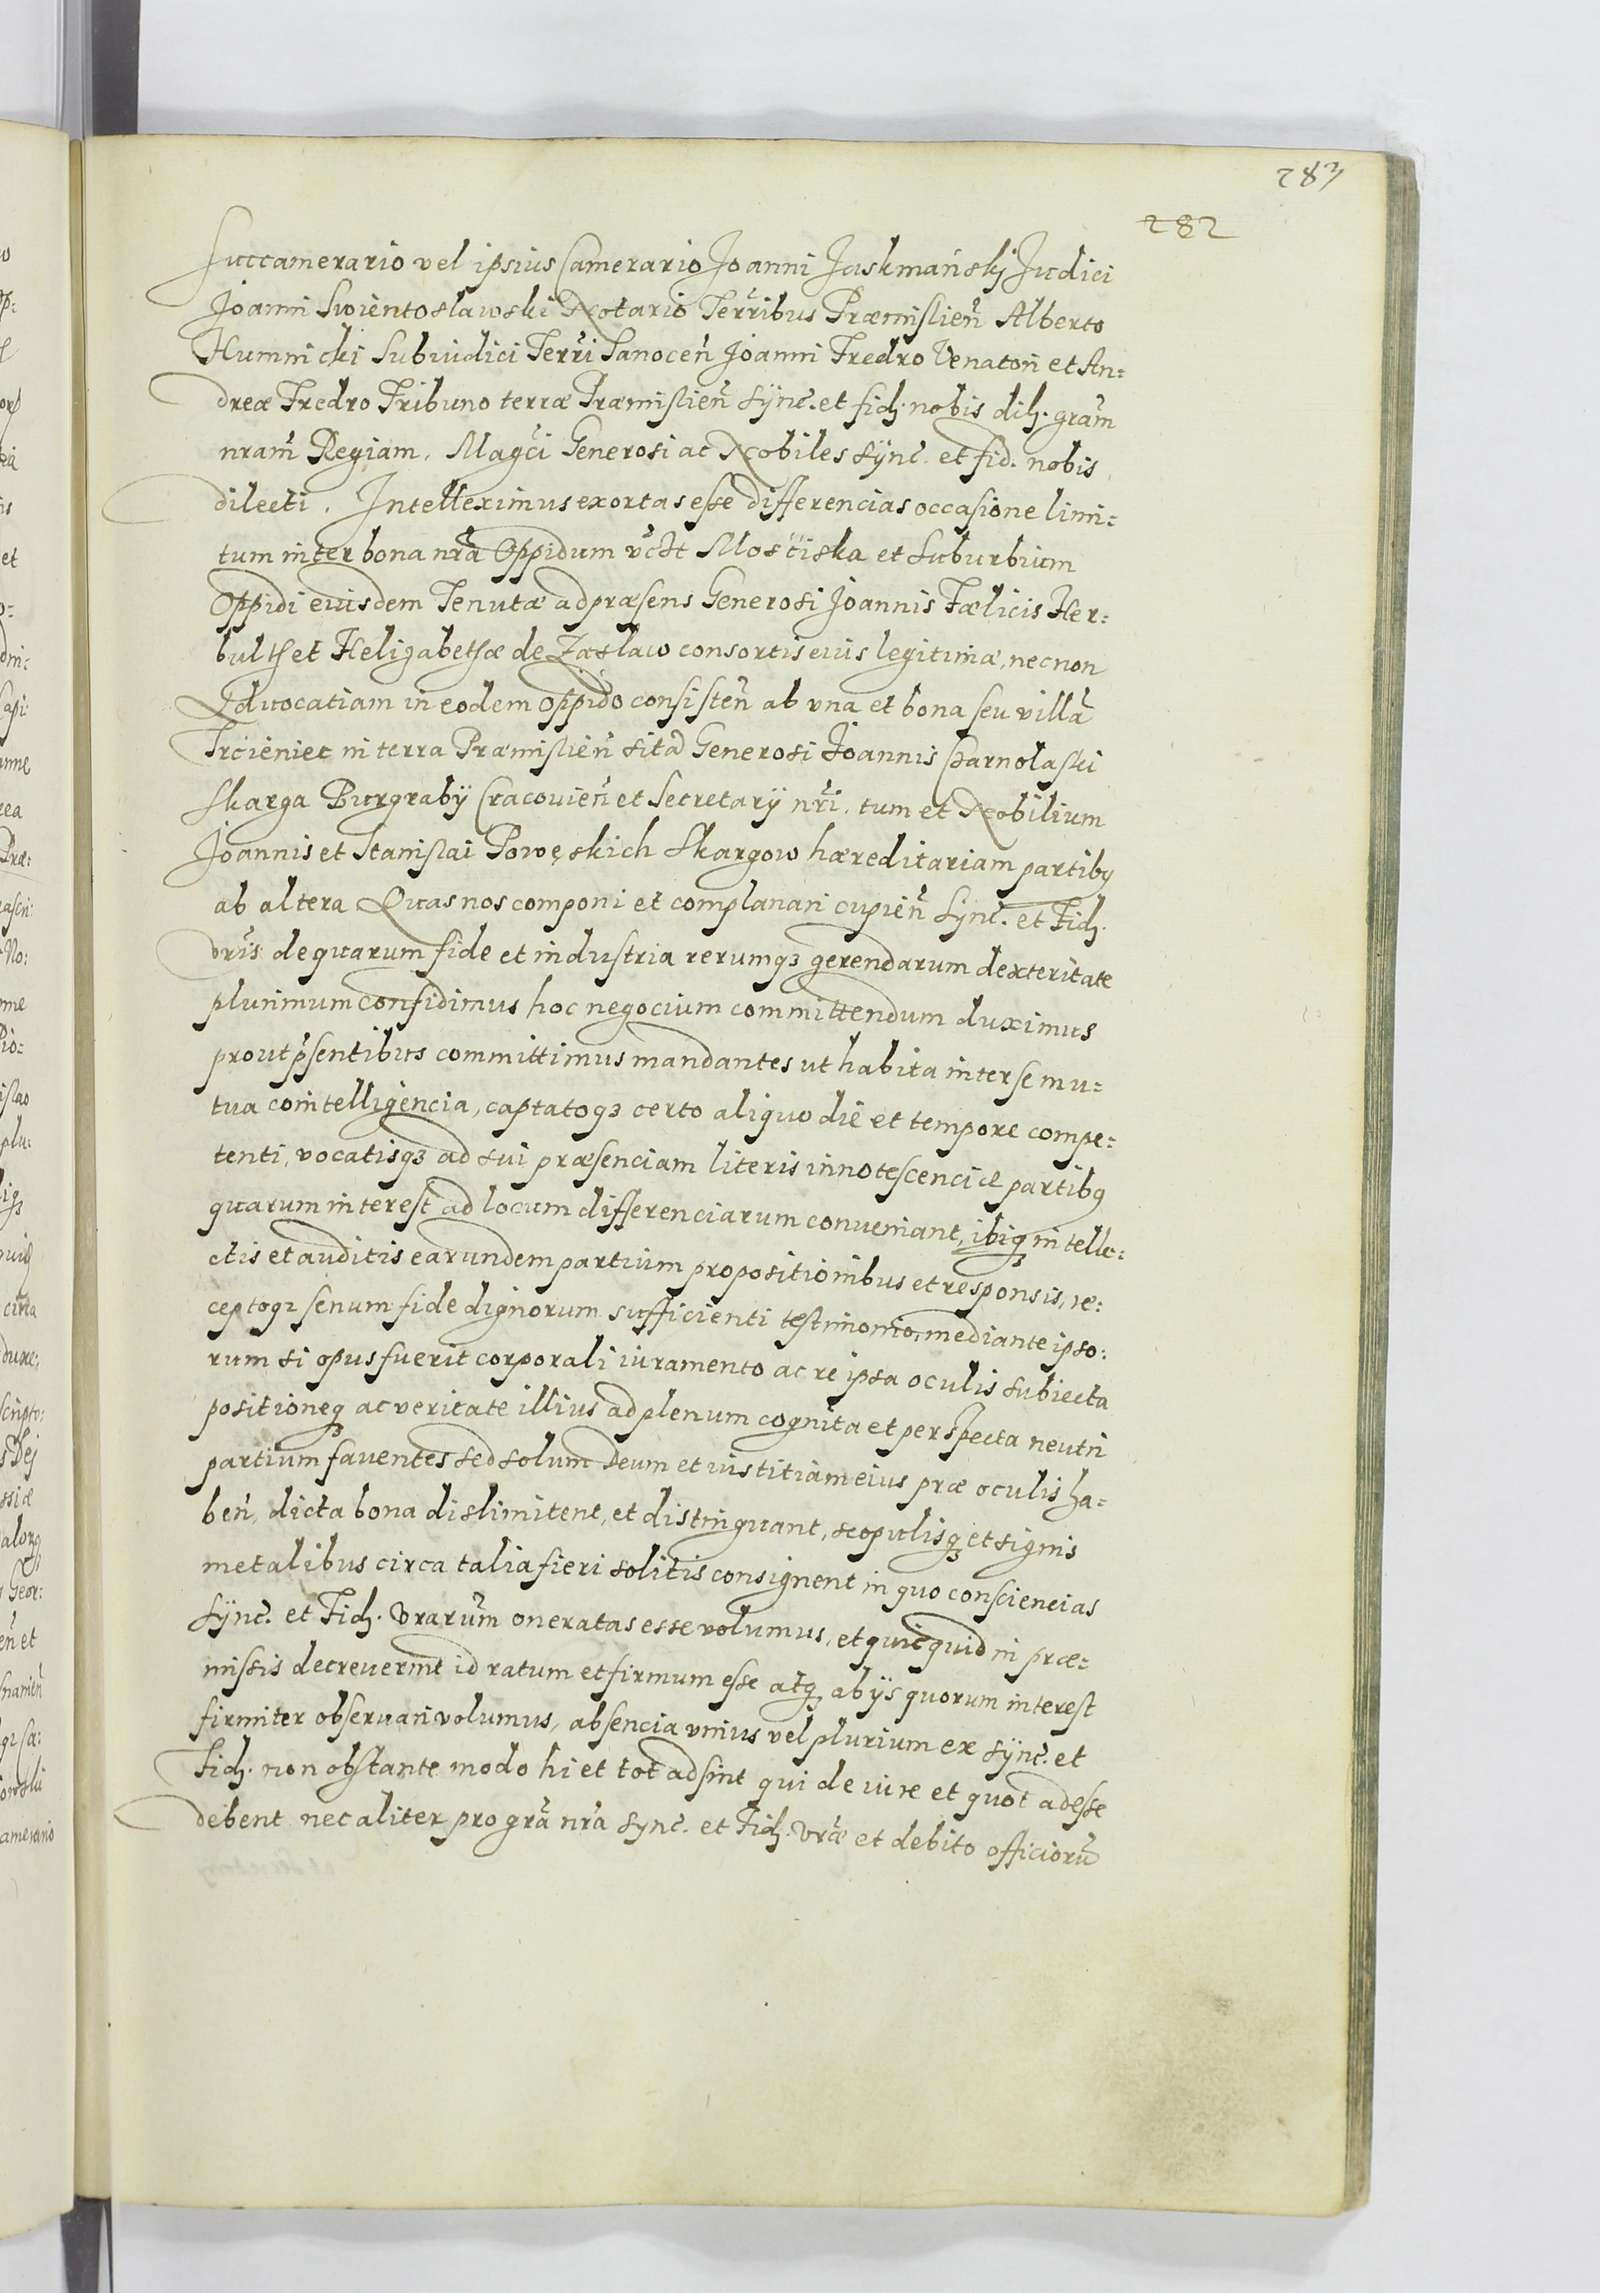 283
282
Succamerario vel ipsius Camerario Joanni Jaskmański Judici
Joanni Swientoslawski Notario Terribus Præmislien̄ Alberto
Humnicki Subiudici Terri Sanocen̄ Joanni Fredro Venatori et An=
dreæ Fredro Tribuno terræ Præmislien̄ Sÿnc. et fid. nobis dil. gram̄
nram̄ Regiam. Magci Generosi ac Nobiles sÿnc. et fid. nobis
dilecti. Intelleximus exortas esse differencias occasione limi=
tum inter bona nrā Oppidum vc̄zt Mosciska et Suburbium
Oppidi eiusdem Tenutæ ad præsens Generosi Joannis Fælicis Her=
bulth et Helizabethæ de Zaslaw consortis eius legitimæ, necnon
Advocatiam in eodem oppido consisten̄ ab vna et bona seu villā
Trcieniec in terra Præmislien̄ sitā Generosi Joannis Charnolaski
Skarga Burgrabÿ Cracouien̄ et Secretarÿ nrī. tum et Nobilium
Joannis et Stanislai Powęskich Skargow hæreditariam partibꝫ
ab altera Quas nos componi et complanari cupien̄ Sÿnc. et Fid.
vrīs de quarum fide et industria rerumqꝫ gerendarum dexteritate
plurimum confidimus hoc negocium committendum duximus
prout p̄sentibus committimus mandantes ut habita inter se mu=
tua cointelligencia, captatoqꝫ certo aliquo die et tempore compe=
tenti, vocatisqꝫ ad sui præsenciam literis innotescenciæ partibꝫ
quarum interest ad locum differenciarum conueniant, ibiqꝫ intelle=
ctis et auditis earundem partium propositionibus et responsis, re=
ceptoqꝫ senum fide dignorum sufficienti testimonio, mediante ipso=
rum si opus fuerit corporali iuramento ac re ipsa oculis subiecta
positioneqꝫ ac veritate illius ad plenum cognita et perspecta neutri
partium fauentes sed solum Deum et iustitiam eius præ oculis ha=
ben̄, dicta bona dislimitent, et distinguant, scopulisqꝫ et signis
metalibus circa talia fieri solitis consignent in quo consciencias
Sÿnc. et Fid. Vrarūm oneratas esse volumus, et quicquid in præ=
missis decreuerint id ratum et firmum esse atqꝫ ab ijs quorum interest
firmiter obseruari volumus, absencia vnius vel plurium ex Sÿnc. et
Fid. non obstante modo hi et tot adsint qui de iure et quot adesse
debent nec aliter pro grā nrā Sync. et Fid. Vrāe et debito officiorū